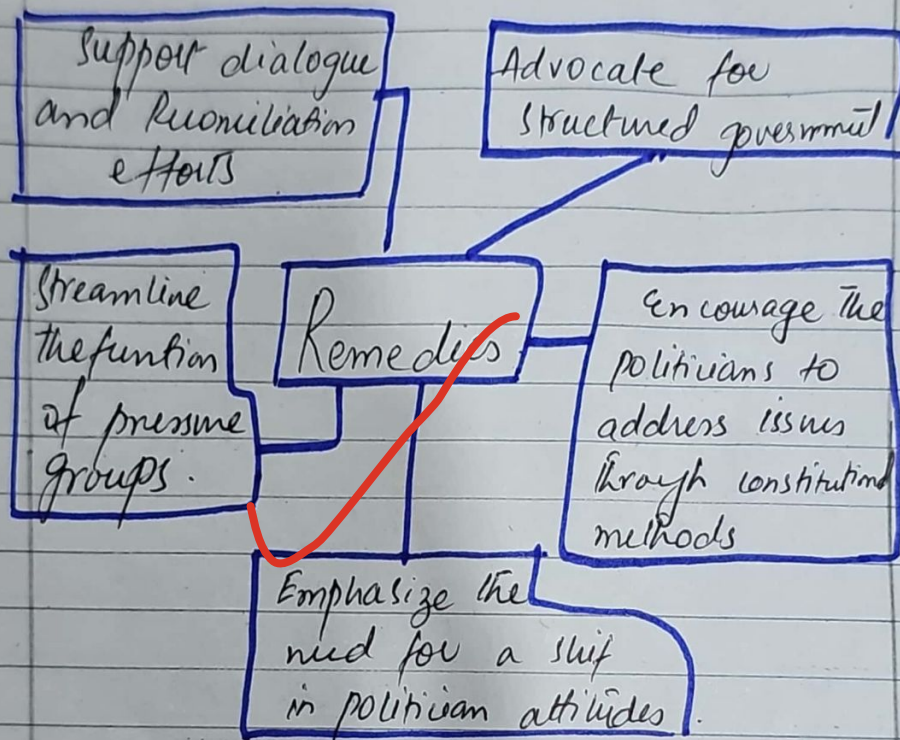 Support dialogue
and Reconciliation
efforts
Advocate for
structured government
Streamline
the funtion
of pressure
groups.
Remedies
Encourage the
politicians to
address issues
through constitutional
methods
Emphasize the
need for a shif
in politician attitudes.